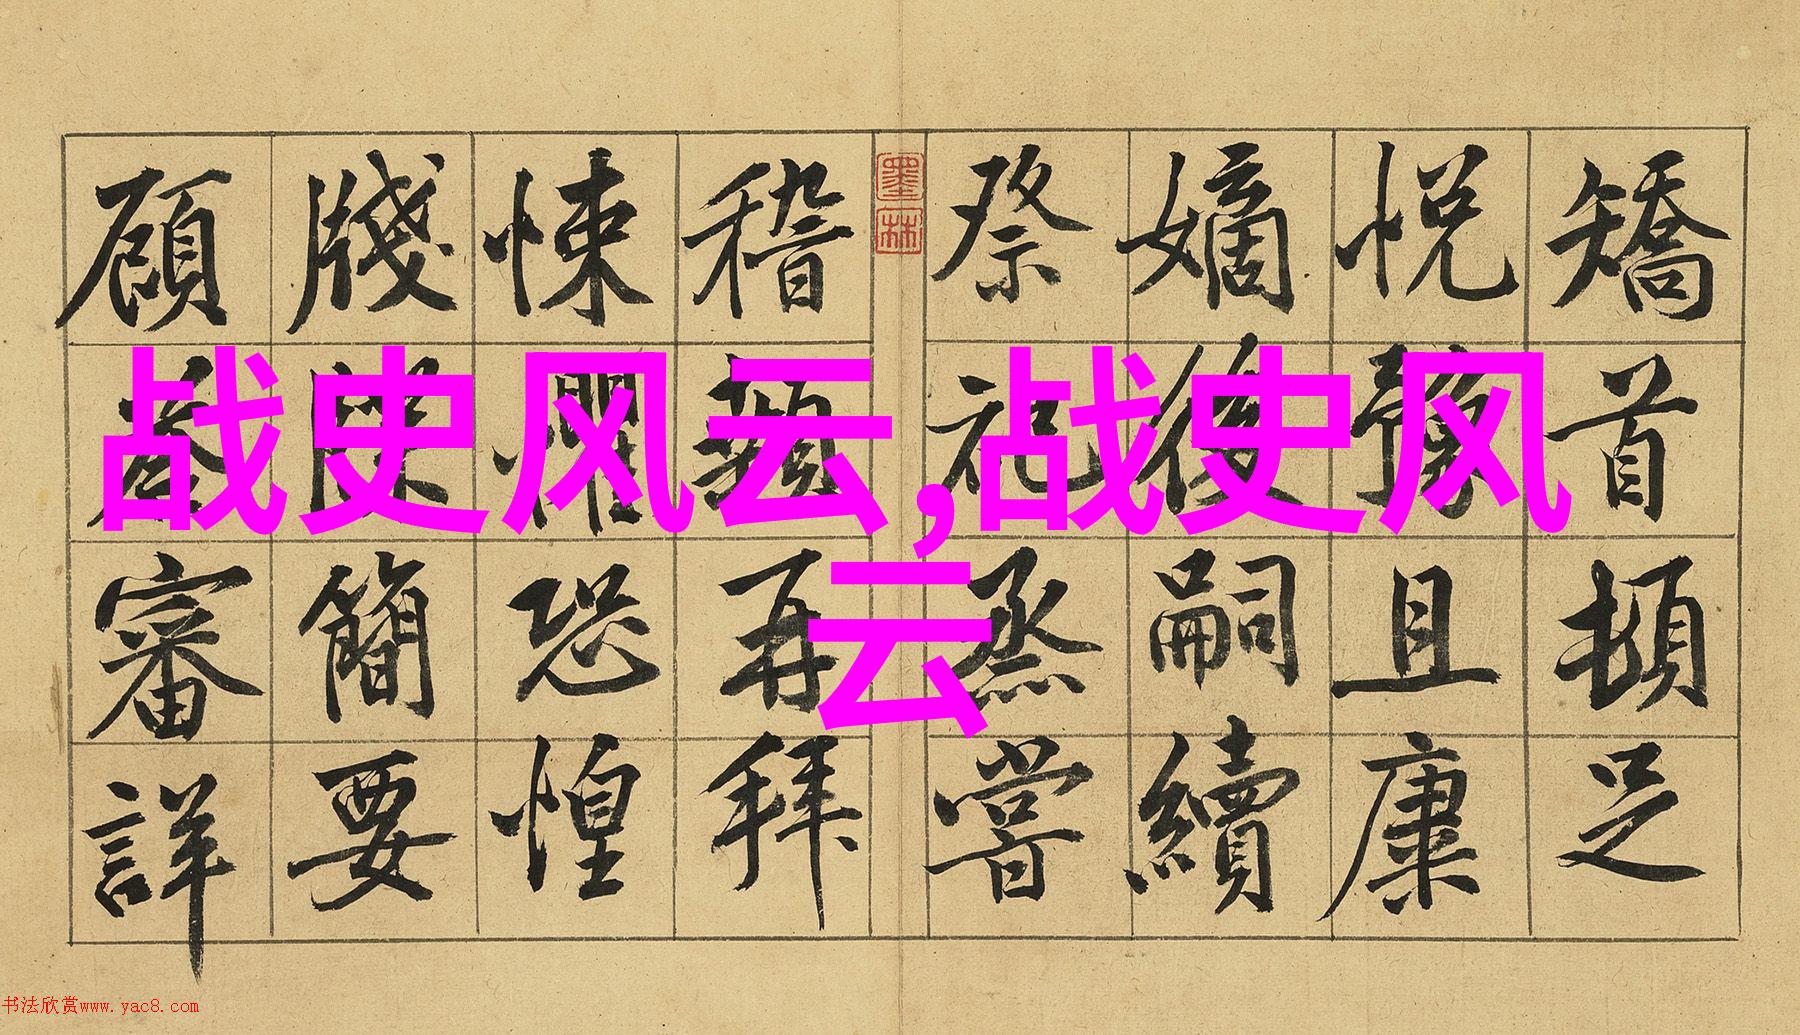 矯首頓足
悦豫且康
嫡後嗣續
祭祀烝嘗
墨林
稽顙再拜
悚懼恐惶
牋牒簡要
顧答審詳
战史风云,战史风
云
书法欣赏www.yac8.com